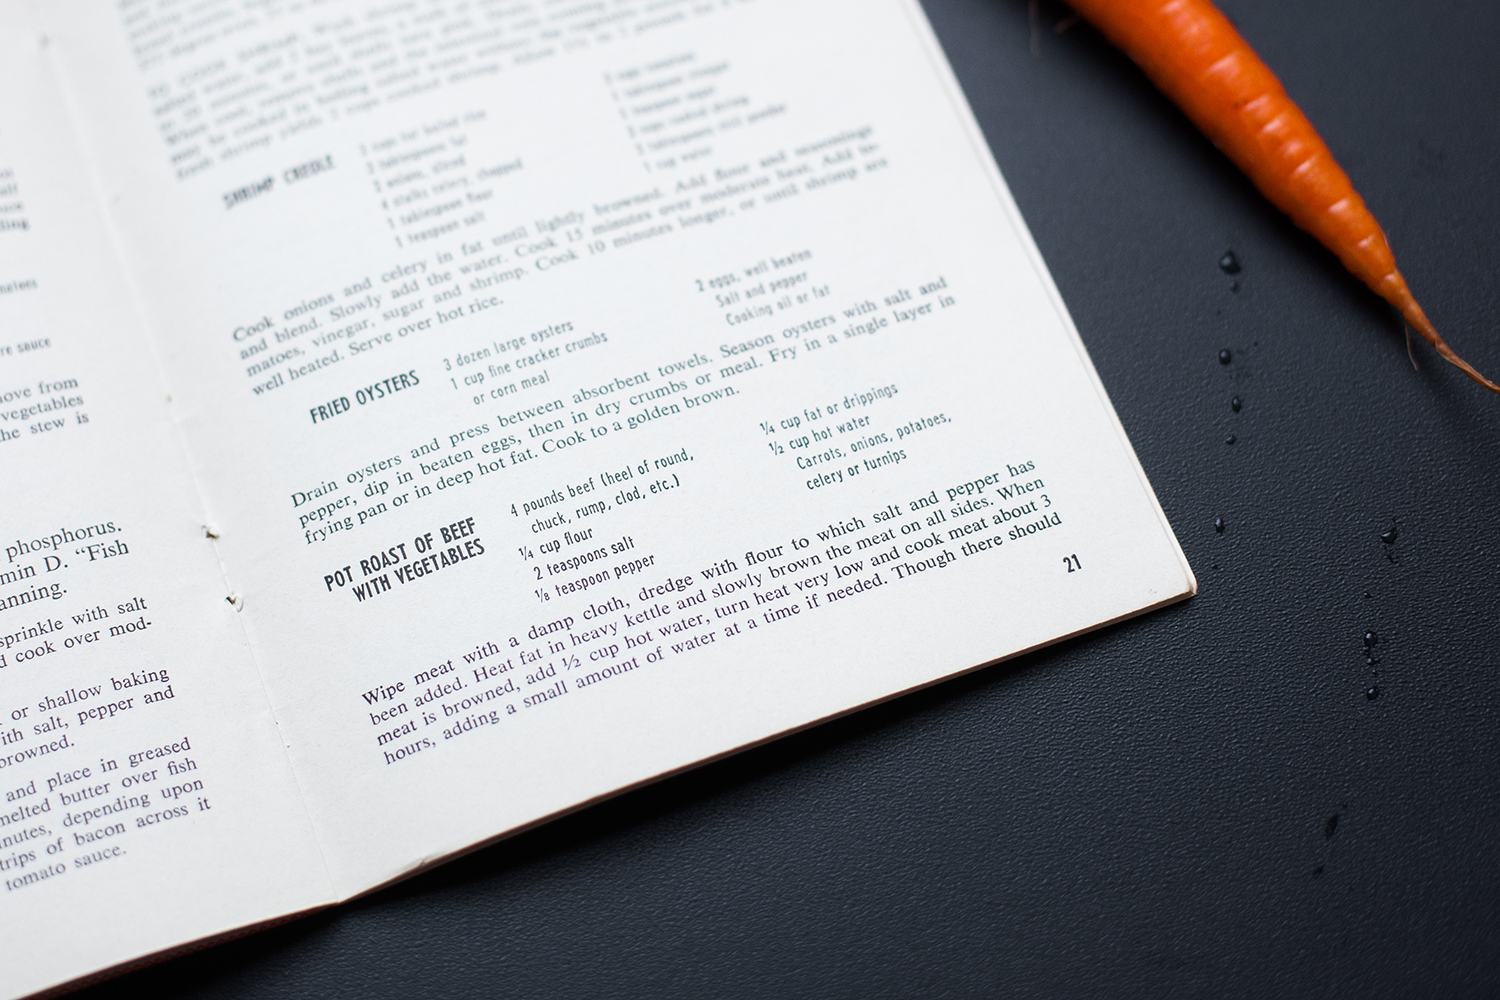 re sauce
ove from
vegetables
he stew is
phosphorus.
min D. “Fish
anning.
sprinkle with salt
d cook over mod-
or shallow baking
ith salt, pepper and
browned.
and place in greased
melted butter over fish
nutes, depending upon
trips of bacon across it
tomato sauce.
SHRIMP CREOLE
2 tablespoons fat
2 onions, sliced
4 stalks celery, chopped
1 tablespoon flour
1 teaspoon salt
1 cup water
Cook onions and celery in fat until lightly browned. Add flour and seasonings
and blend. Slowly add the water. Cook 15 minutes over moderate heat. Add to-
matoes, vinegar, sugar and shrimp. Cook 10 minutes longer, or until shrimp are
well heated. Serve over hot rice.
FRIED OYSTERS
3 dozen large oysters
1 cup fine cracker crumbs
or corn meal
2 eggs, well beaten
Salt and pepper
Cooking oil or fat
Drain oysters and press between absorbent towels. Season oysters with salt and
pepper, dip in beaten eggs, then in dry crumbs or meal. Fry in a single layer in
frying pan or in deep hot fat. Cook to a golden brown.
POT ROAST OF BEEF
WITH VEGETABLES
4 pounds beef (heel of round,
chuck, rump, clod, etc.)
¼ cup flour
2 teaspoons salt
⅛ teaspoon pepper
¼ cup fat or drippings
½ cup hot water
Carrots, onions, potatoes,
celery or turnips
Wipe meat with a damp cloth, dredge with flour to which salt and pepper has
been added. Heat fat in heavy kettle and slowly brown the meat on all sides. When
meat is browned, add ½ cup hot water, turn heat very low and cook meat about 3
hours, adding a small amount of water at a time if needed. Though there should
21